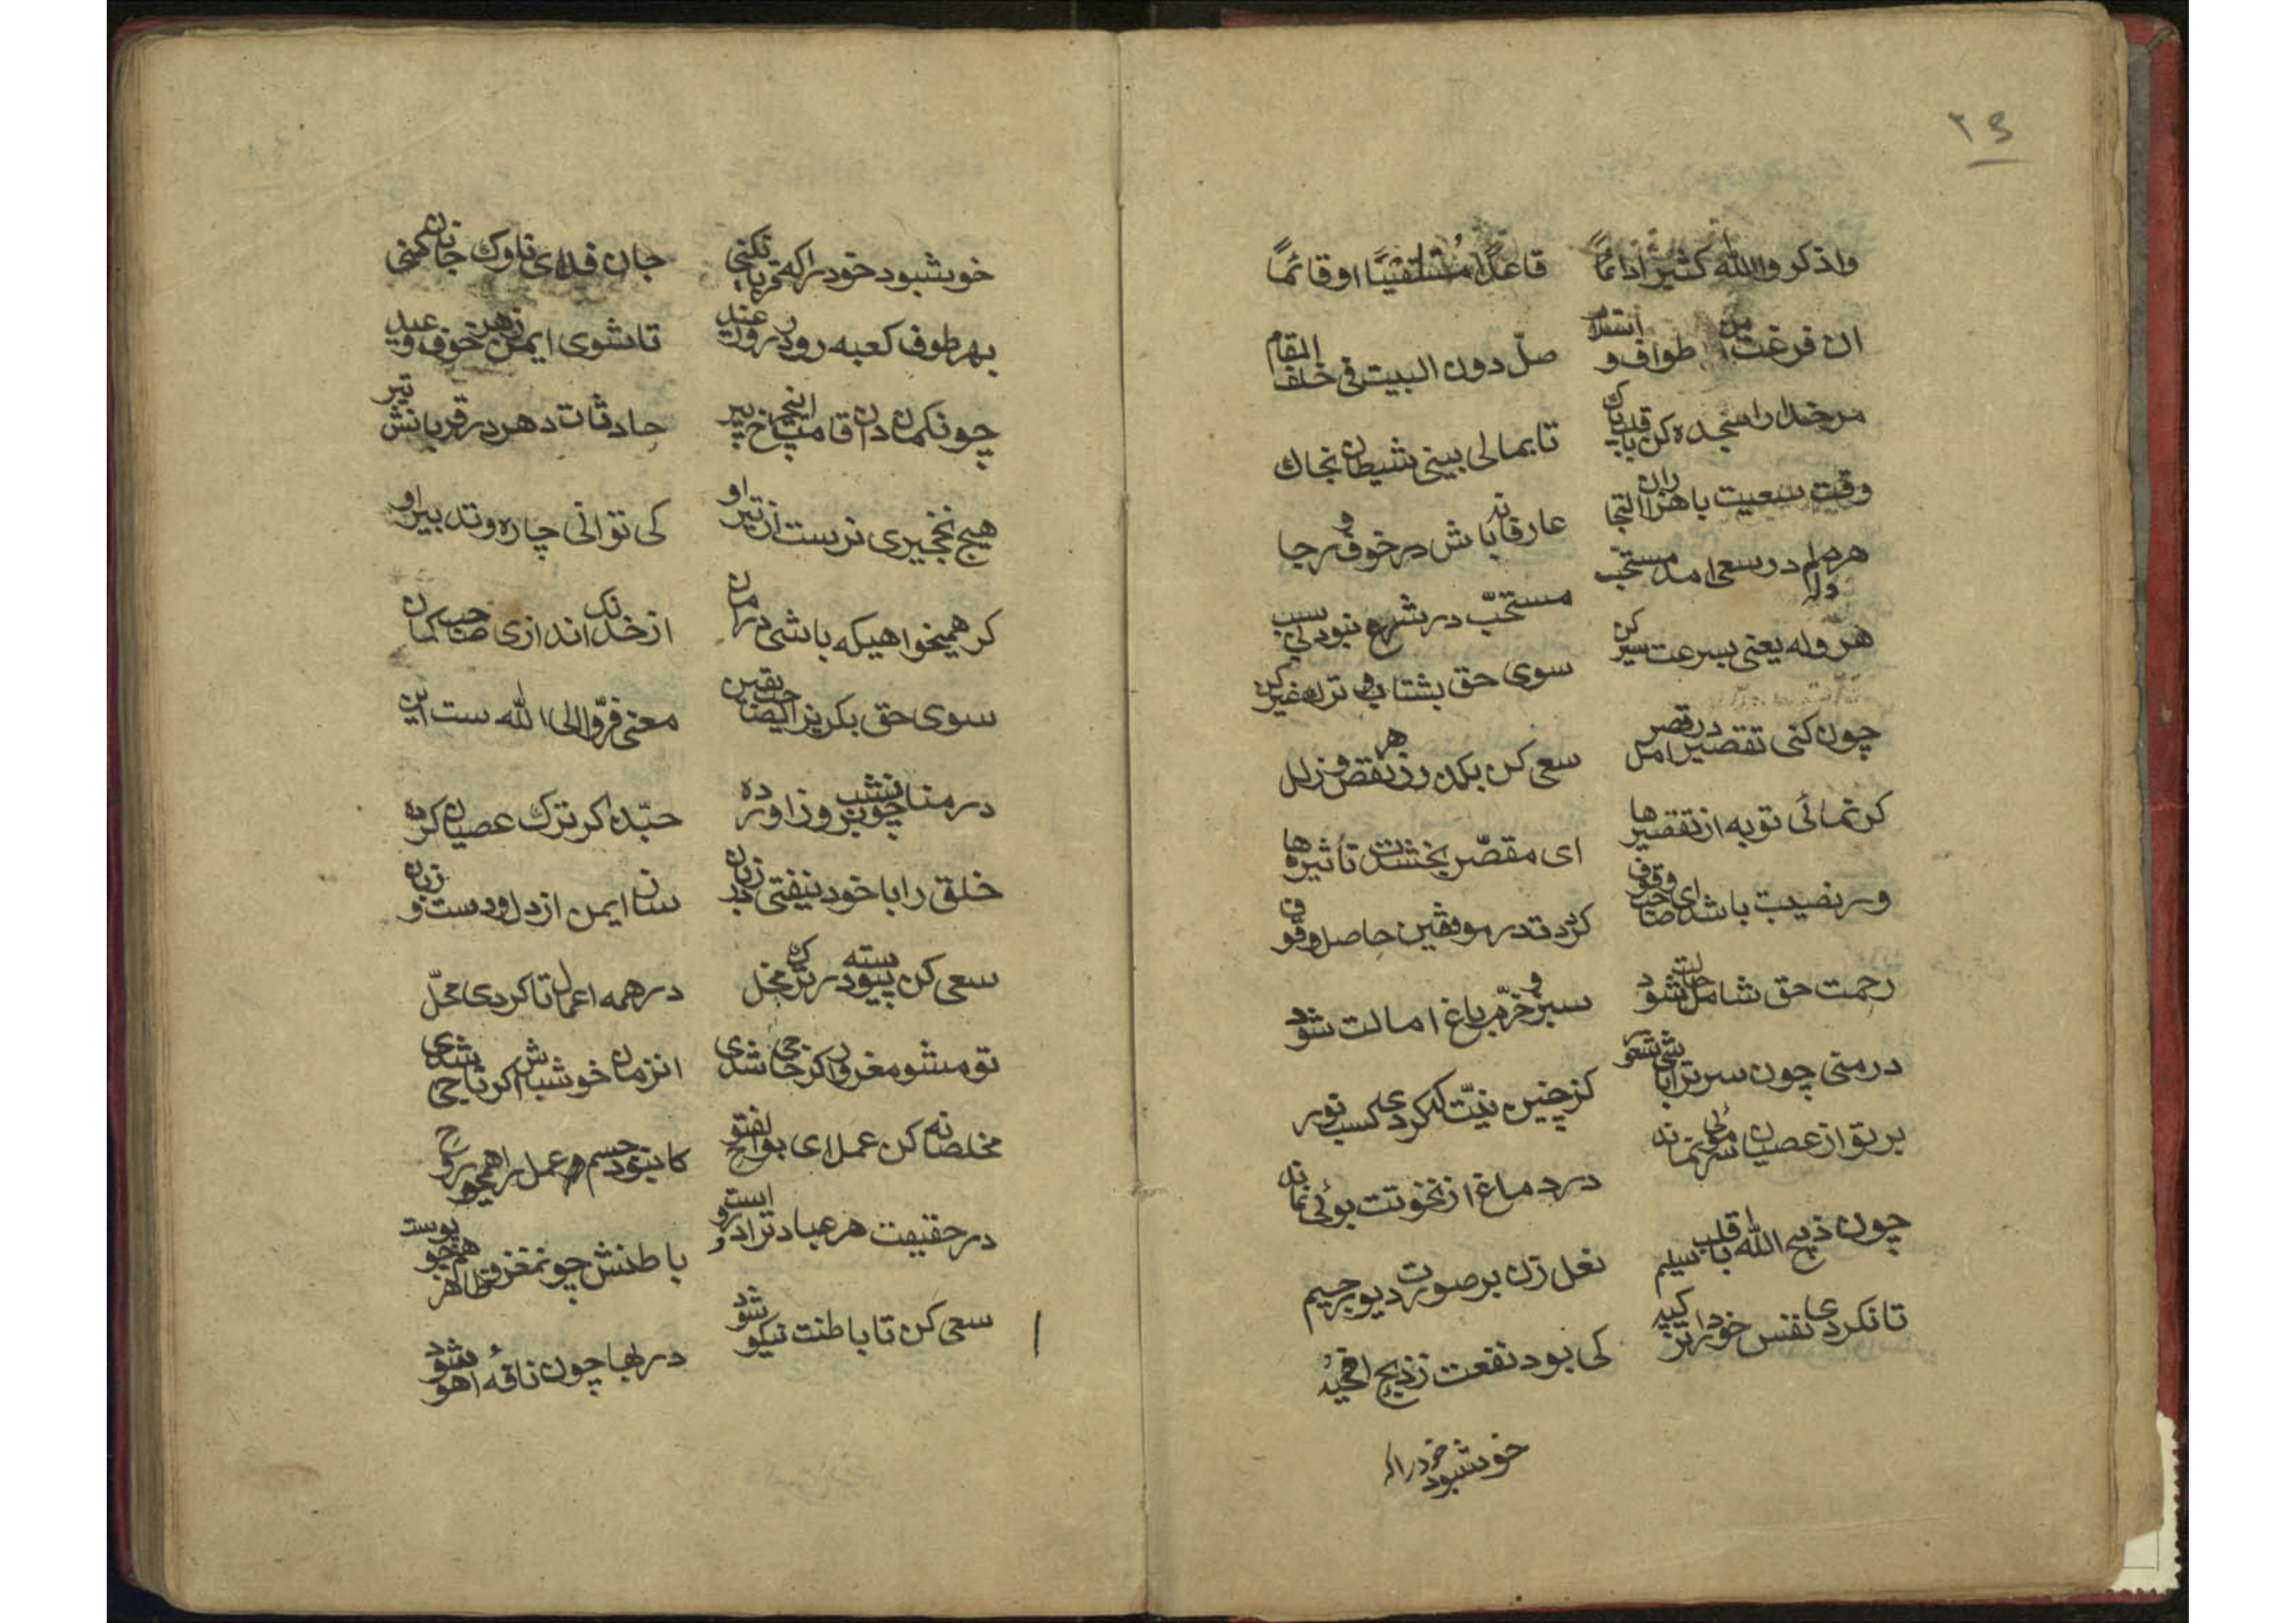 ٢٤
واذكروا الله كثيرا دائمًا قاعدًا مستلقیًا او قائمًا
ان فرغت من طواف و استلام صلّ دون البیت فی خلف المقام
مر خدا را سجده کن با قلب پاک تا بمالی بینی شیطان بخاک
وقت سعیت با هزاران التجا عارفانه باش در خوف و رجا
هروله در وسعی امد مستحب مستحبّ در شرع نبود بی سبب
هروله یعنی بسرعت سیر کن سوی حق بشتاب و ترك غیر کن
چون کنی تقصیر در قصر امل سعی کن بکدر ز هر نقص و زلل
کر نمائی توبه از تقصیرها ای مقصّر بخشدت تأثیرها
ور نصیبت باشد ای صاحب وقوف کرددت در موقفین حاصل وقوف
رحمت حق شامل حالت شود سبز و خرّم باغ امالت شود
در منی چون سر تراشی با شعور کز چنین نیّت کنکردی کسب نور
بر تو از عصیان سر موئی نماند در دماغ از نخوتت بوئی نماند
چون ذبیح الله با قلب سلیم نعل زن بر صورت دیو رجیم
تا نکردی نفس خود را ریز کبد کی بود نفعت ز ذبح
خوشبود خود را که
خوشبود خود را که قربانی کنی جان فدای ناوك جانان کنی
بهر طوف کعبه رو در روز عید تا شوی ایمن ز هر خوف و عید
چونکمان دان قامت این چرخ پیر حادثات دهر در قربانش تیر
هیچ نخجیری نرست از تیر او کی توانی چاره و تدبیر او
کر همیخواهیکه باشی در امان از خدنک اندازی صاحب کمان
سوی حق بکریز ای صاحب یقین معنی فرّوا الی الله ست این
در منا چون شب بروز اورده حبّذا کر ترك عصیان کرده
خلق را با خود نیفتی بد زبان سان ایمن از دل و دست و زبان
سعی کن پیوسته در ترک مخل در همه اعمال تا کردی محلّ
تو مشو مغرور اکر حاجی شدی انزمان خوش باش اکر ناجی شدی
مخلصانه کن عمل ای بوالفتوح کا بنود جسم عمل را همچو روح
در حقیقت هر عبادت را دو روست باطنش چو نمغز و ظاهر همچو پوست
سعی کن تا باطنت نیکو شود در بها چون نافهٔ اهو شود